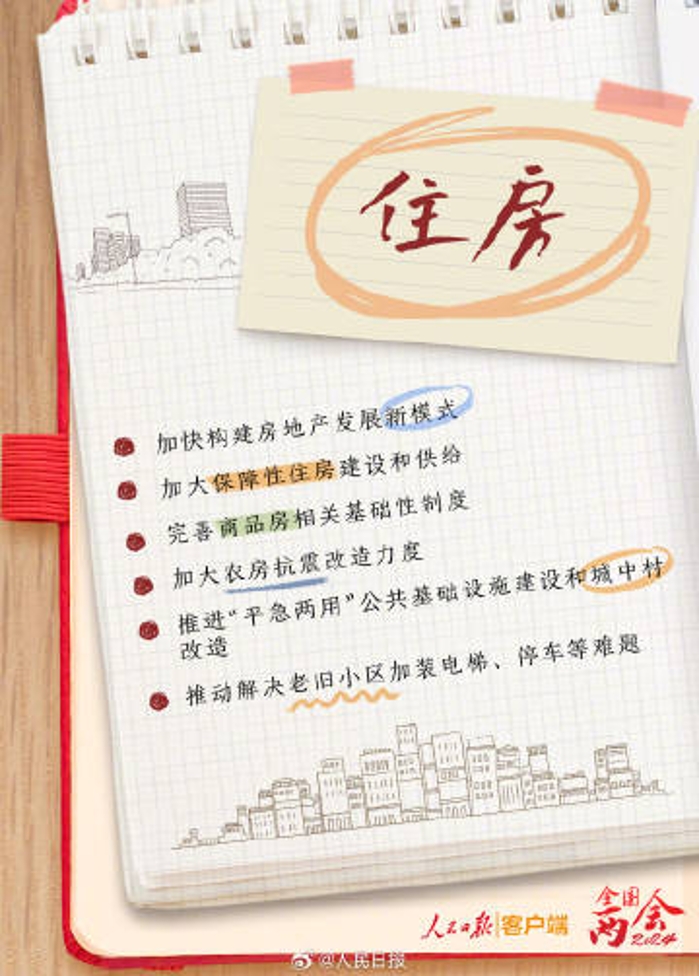 住房
加快构建房地产发展新模式
加大保障性住房建设和供给
完善商品房相关基础性制度
加大农房抗震改造力度
推进“平急两用”公共基础设施建设和城中村
改造
推动解决老旧小区加装电梯、停车等难题
人民日报|客户端
全国
两会
2024
@人民日报